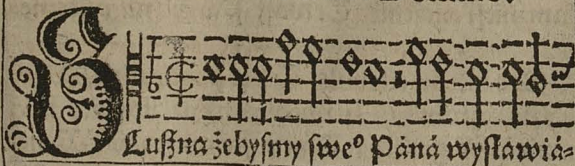 SLuſzna żebyſmy ſweº Páná wyſławiá⸗